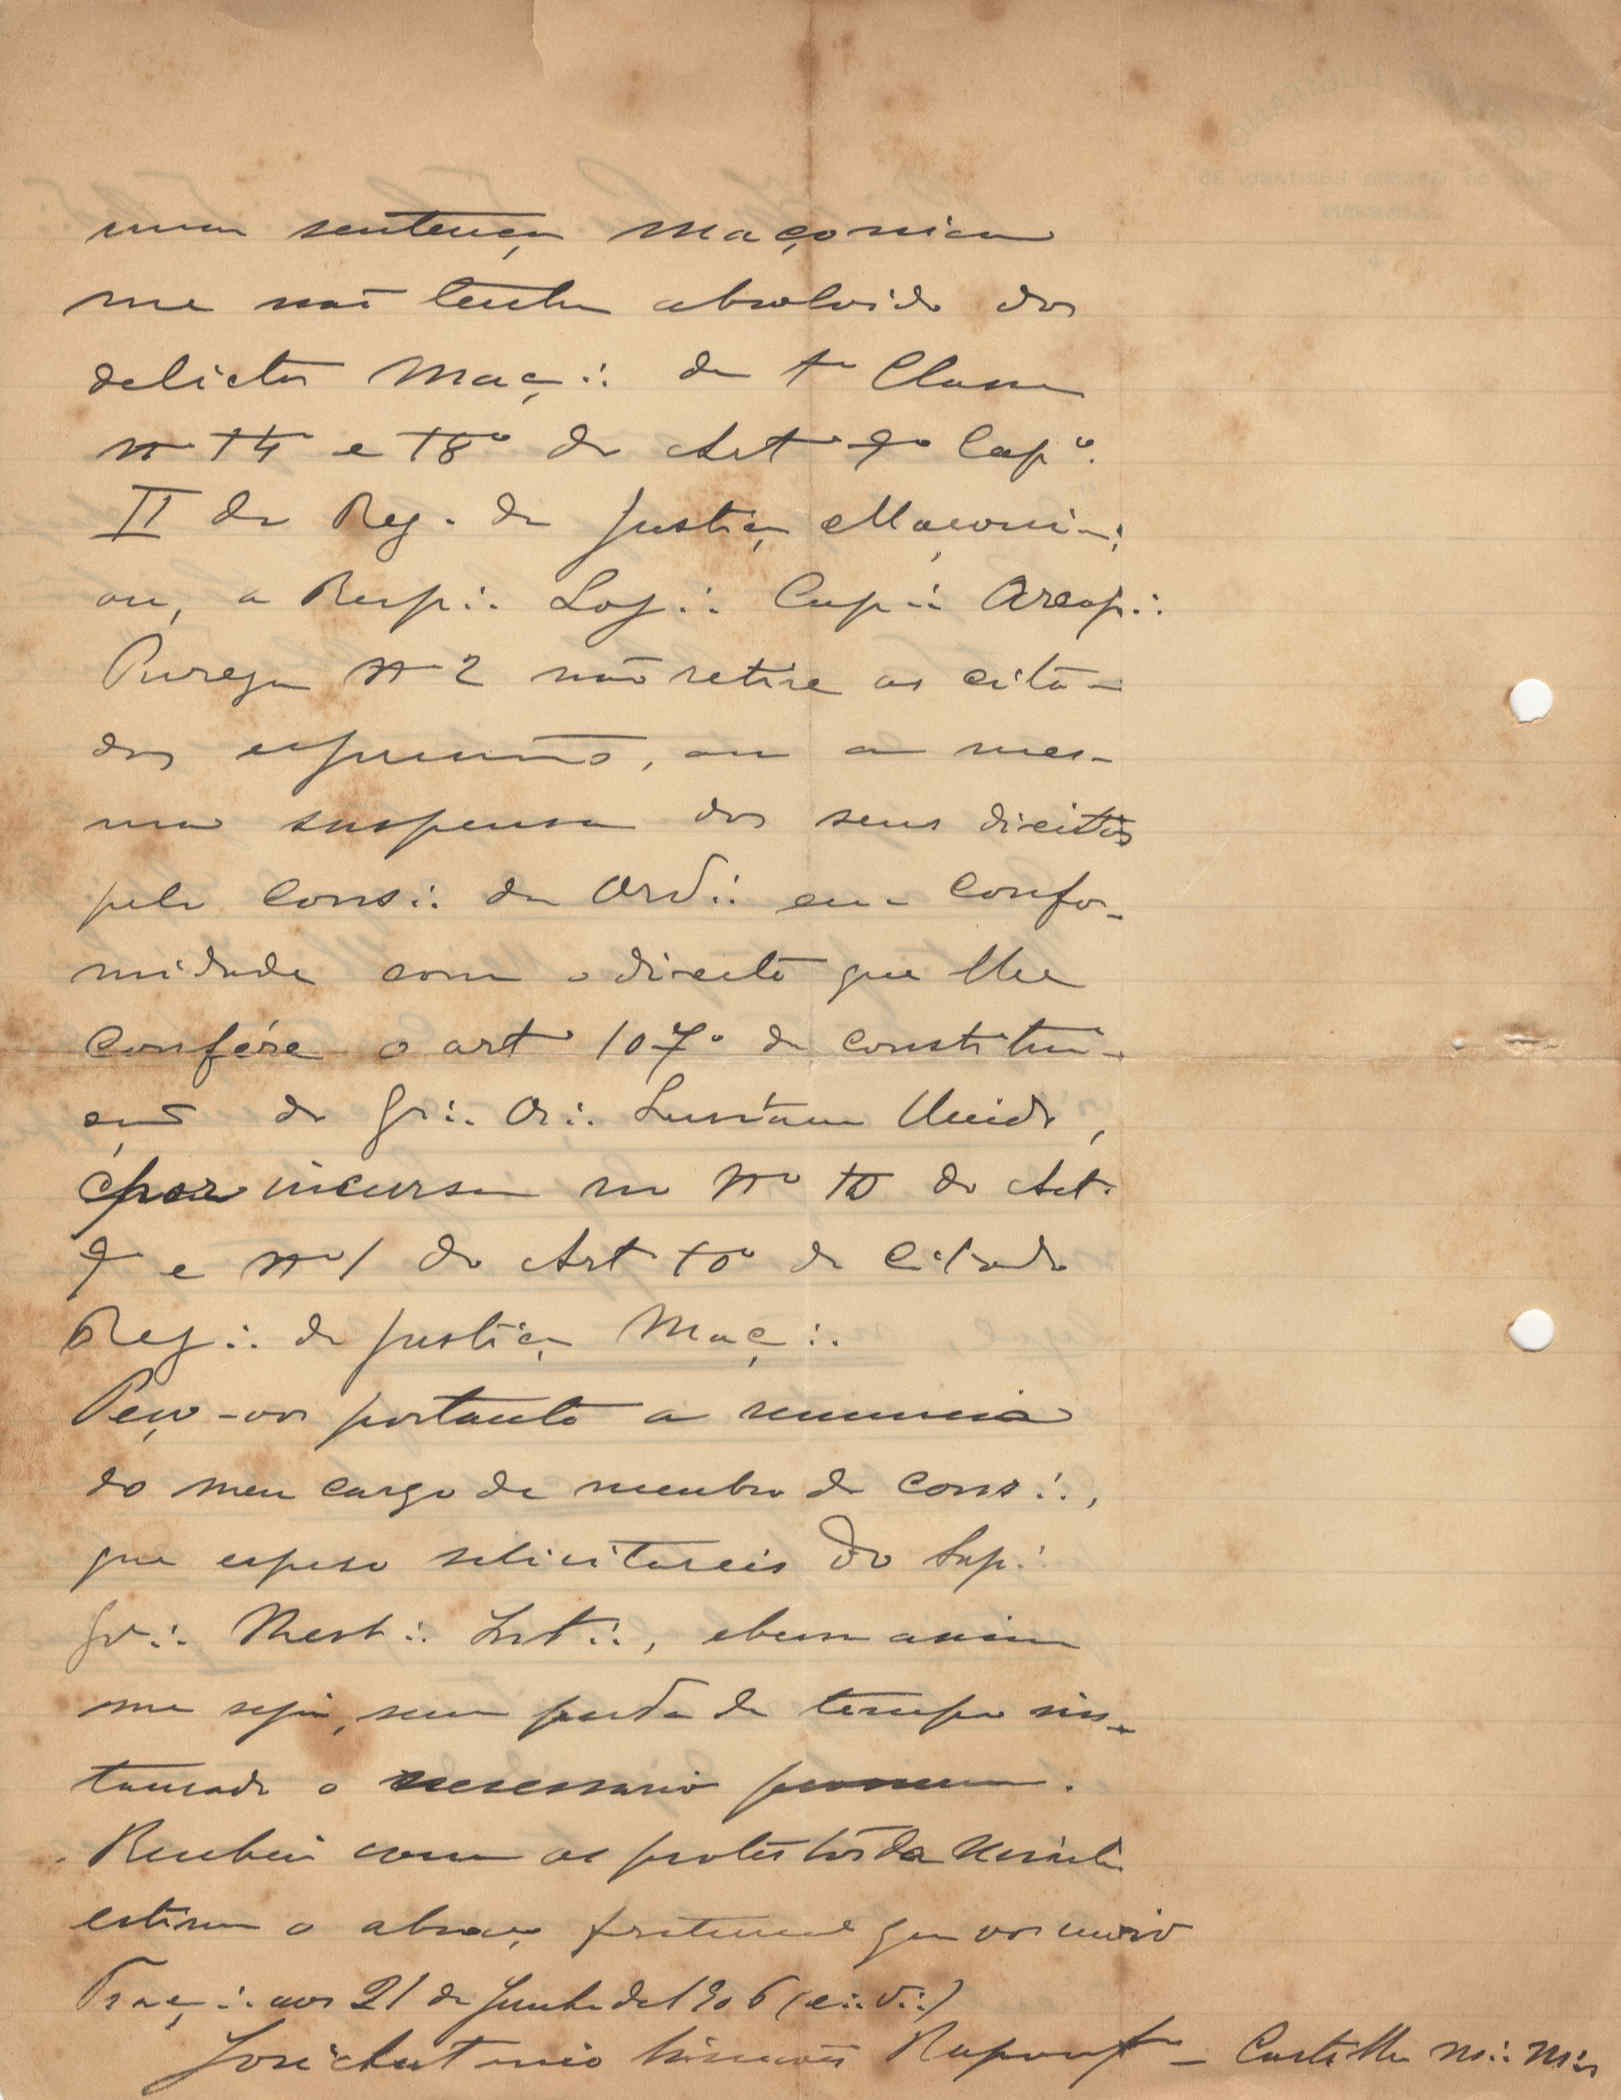 uma sentença maçonica
me não tenha absolvido dos
delictos Maç∴ da 1ª Classe
nº 14º e 18º do Art 9º Capº.
II do Reg. da Justiça Maçoni∴;
ou, a Resp∴ Loj∴ Cap∴ Areop∴
Pureza Nº 2 não retire as cita-
das expressões, ou a mes-
ma suspensa dos seus direitos
pelo Cons∴ da Ord∴ em confor-
midade com o direito que lhe
confére o art 107º da constitui-
ção do Gr∴ Or∴ Lusitano Unido,
e por incursa no nº 10 do Art.
9 e nº 1 do Art 10º do Citado
Reg∴ da Justiça Maç∴
Peço-vos portanto a renuncia
do meu cargo de membro do Cons∴,
que espero solicitareis do Sap∴
Gr∴ Mest∴ Int∴, e bem assim
me seja, sem perda de tempo ins-
taurado o necessario processo.
Recebei com os protestos da minha
estima o abraço fraternal que vos envio
Traç∴ aos 21 de Junho de 1906 (e∴ v∴)
José Antonio Simões Raposo Jor - Castilho M∴ M∴